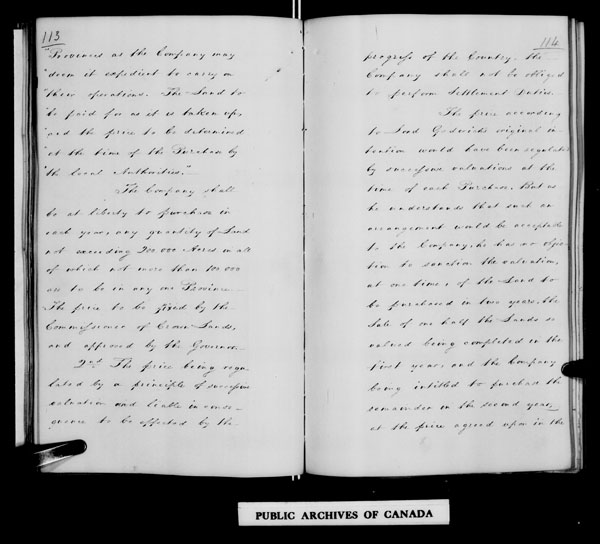 113
"Provinces as the Company may
"deem it expedient to carry on
"their operations. The Land to
"be paid for as it is taken up,
"and the price to be determined
"at the time of the Purchase by
"the local Authorities."
The Company shall
be at liberty to purchase in
each year, any quantity of Land
not exceeding 200 000 Acres in all
of which not more than 100 000
are to be in any one Province
The price to be fixed by the
Commissioner of Crown Lands,
and approved by the Governor
2nd The price being regu-
lated by a principle of successive
valuation and liable in conse-
quence to be affected by the
114
progress of the Country. The
Company shall not be obliged
to perform Settlement Duties.
The price according
to Lord Goderich's original in-
tention would have been regulated
by successive valuations at the
time of each Purchase. But as
he understands that such an
arrangement would be acceptable
to the Company, he has no objec-
tion to sanction the valuation,
at one time, of the Land to
be purchased in two years, the
Sale of one half the Lands so
valued being completed in the
first year, and the Company
being entitled to purchase the
remainder in the second year,
at the price agreed upon in the
PUBLIC ARCHIVES OF CANADA